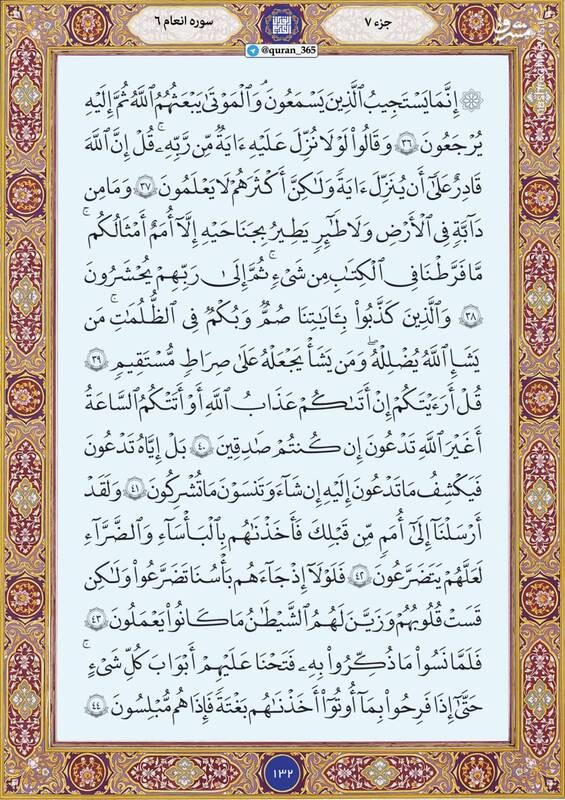 جزء ۷
سوره انعام ۶
@quran_365
مشرق
mashreghnews.ir
۞ إِنَّمَا يَسْتَجِيبُ ٱلَّذِينَ يَسْمَعُونَۘ وَٱلْمَوْتَىٰ يَبْعَثُهُمُ ٱللَّهُ ثُمَّ إِلَيْهِ
يُرْجَعُونَ ۳۶ وَقَالُوا۟ لَوْلَا نُزِّلَ عَلَيْهِ ءَايَةٌ مِّن رَّبِّهِۦۚ قُلْ إِنَّ ٱللَّهَ
قَادِرٌ عَلَىٰٓ أَن يُنَزِّلَ ءَايَةً وَلَٰكِنَّ أَكْثَرَهُمْ لَا يَعْلَمُونَ ۳۷ وَمَا مِن
دَآبَّةٍ فِى ٱلْأَرْضِ وَلَا طَٰٓئِرٍ يَطِيرُ بِجَنَاحَيْهِ إِلَّآ أُمَمٌ أَمْثَالُكُمۚ
مَّا فَرَّطْنَا فِى ٱلْكِتَٰبِ مِن شَىْءٍۚ ثُمَّ إِلَىٰ رَبِّهِمْ يُحْشَرُونَ
۳۸ وَٱلَّذِينَ كَذَّبُوا۟ بِـَٔايَٰتِنَا صُمٌّ وَبُكْمٌ فِى ٱلظُّلُمَٰتِۗ مَن
يَشَإِ ٱللَّهُ يُضْلِلْهُ وَمَن يَشَأْ يَجْعَلْهُ عَلَىٰ صِرَٰطٍ مُّسْتَقِيمٍ ۳۹
قُلْ أَرَءَيْتَكُمْ إِنْ أَتَىٰكُمْ عَذَابُ ٱللَّهِ أَوْ أَتَتْكُمُ ٱلسَّاعَةُ
أَغَيْرَ ٱللَّهِ تَدْعُونَ إِن كُنتُمْ صَٰدِقِينَ ۴۰ بَلْ إِيَّاهُ تَدْعُونَ
فَيَكْشِفُ مَا تَدْعُونَ إِلَيْهِ إِن شَآءَ وَتَنسَوْنَ مَا تُشْرِكُونَ ۴۱ وَلَقَدْ
أَرْسَلْنَآ إِلَىٰٓ أُمَمٍ مِّن قَبْلِكَ فَأَخَذْنَٰهُم بِٱلْبَأْسَآءِ وَٱلضَّرَّآءِ
لَعَلَّهُمْ يَتَضَرَّعُونَ ۴۲ فَلَوْلَآ إِذْ جَآءَهُم بَأْسُنَا تَضَرَّعُوا۟ وَلَٰكِن
قَسَتْ قُلُوبُهُمْ وَزَيَّنَ لَهُمُ ٱلشَّيْطَٰنُ مَا كَانُوا۟ يَعْمَلُونَ ۴۳
فَلَمَّا نَسُوا۟ مَا ذُكِّرُوا۟ بِهِۦ فَتَحْنَا عَلَيْهِمْ أَبْوَٰبَ كُلِّ شَىْءٍۚ
حَتَّىٰٓ إِذَا فَرِحُوا۟ بِمَآ أُوتُوٓا۟ أَخَذْنَٰهُم بَغْتَةً فَإِذَا هُم مُّبْلِسُونَ ۴۴
۱۳۲